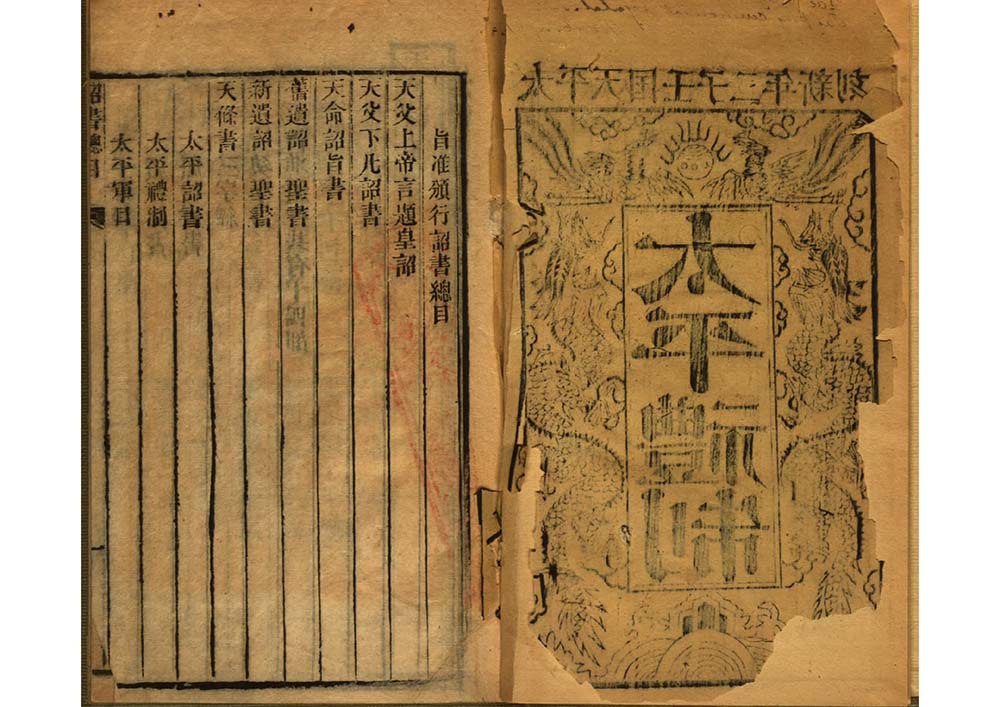 太平天囯壬子二年新刻
太平禮制
旨准頒行詔書總目
天父上帝言題皇詔
天父下凡詔書
天命詔旨書
舊遺詔聖書
新遺詔聖書
天條書
太平詔書
太平禮制
太平軍目
詔書總目
一